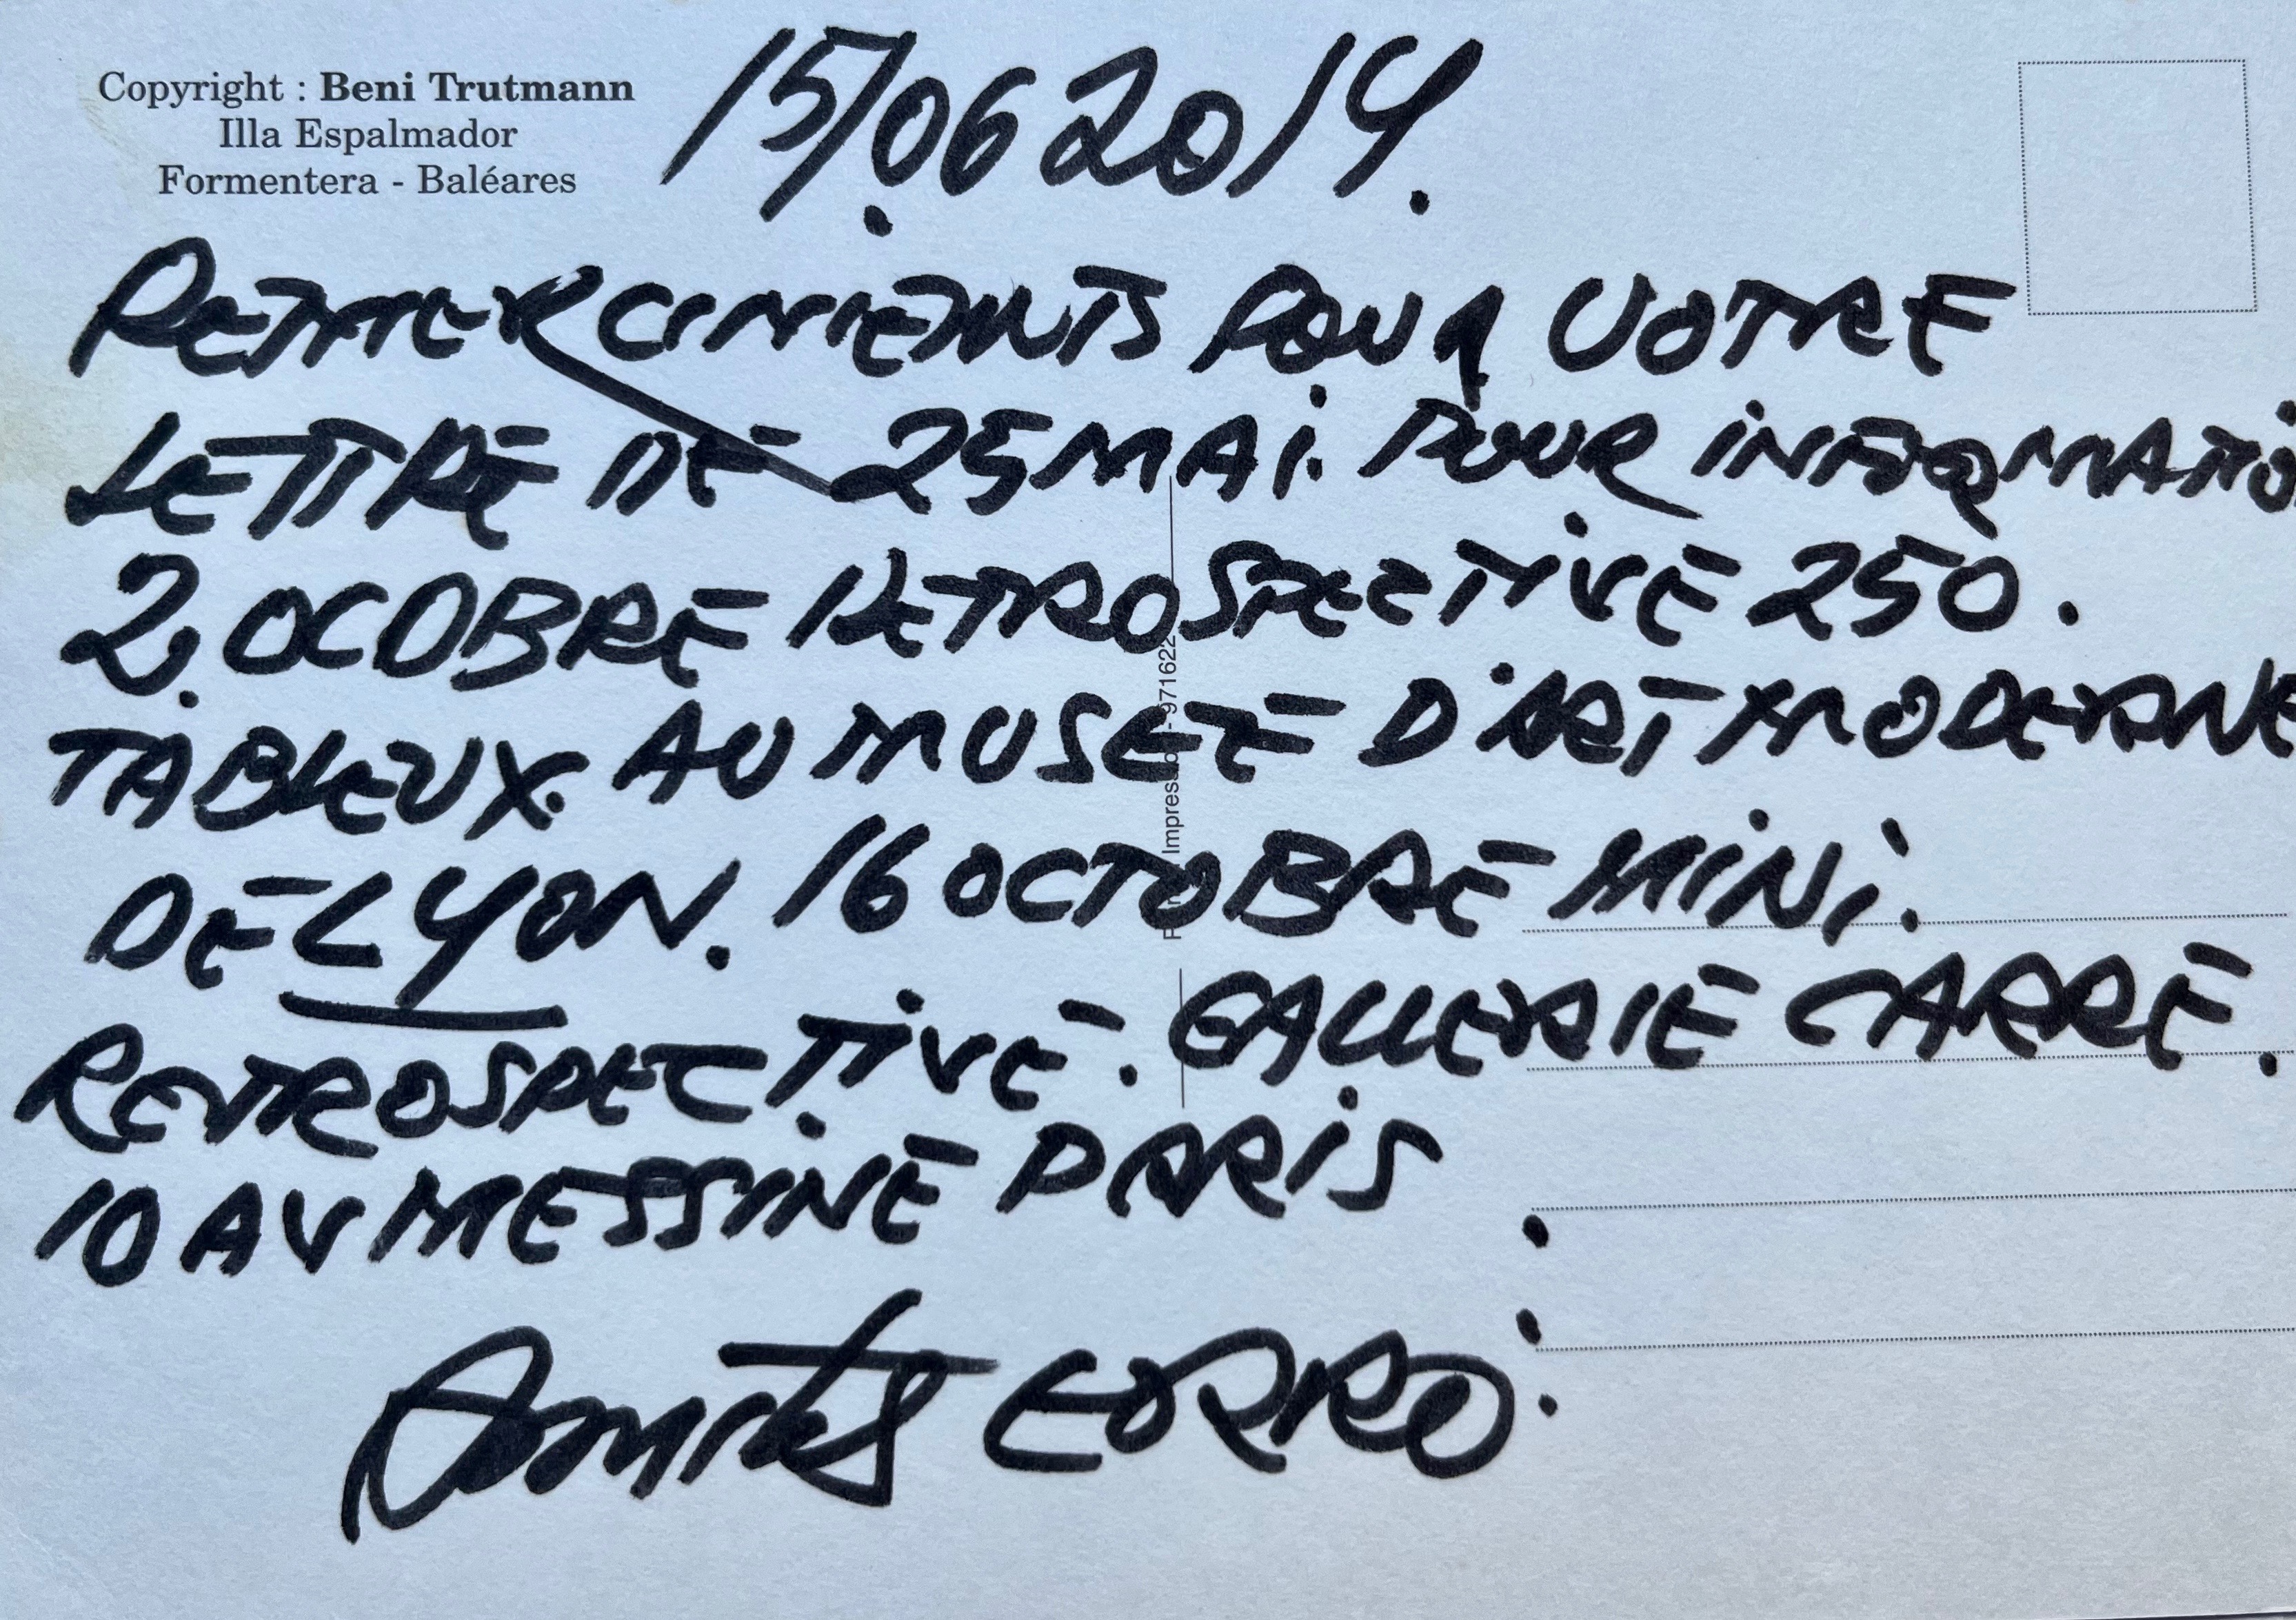 Copyright : Beni Trutmann
Illa Espalmador
Formentera - Baléares
15/06 2014.
REMERCIMENTS POUR VOTRE
LETTRE DE 25 MAI. POUR INFORMATIO
2. OCOBRE RETROSPECTIVE 250.
TABLEUX. AU MUSEE D'ART MODERNE
DE LYON. 16 OCTOBRE MINI.
RETROSPECTIVE. GALLERIE CARRE.
10 AV MESSINE PARIS.
Amitiés ERRO.
Impression - 971622